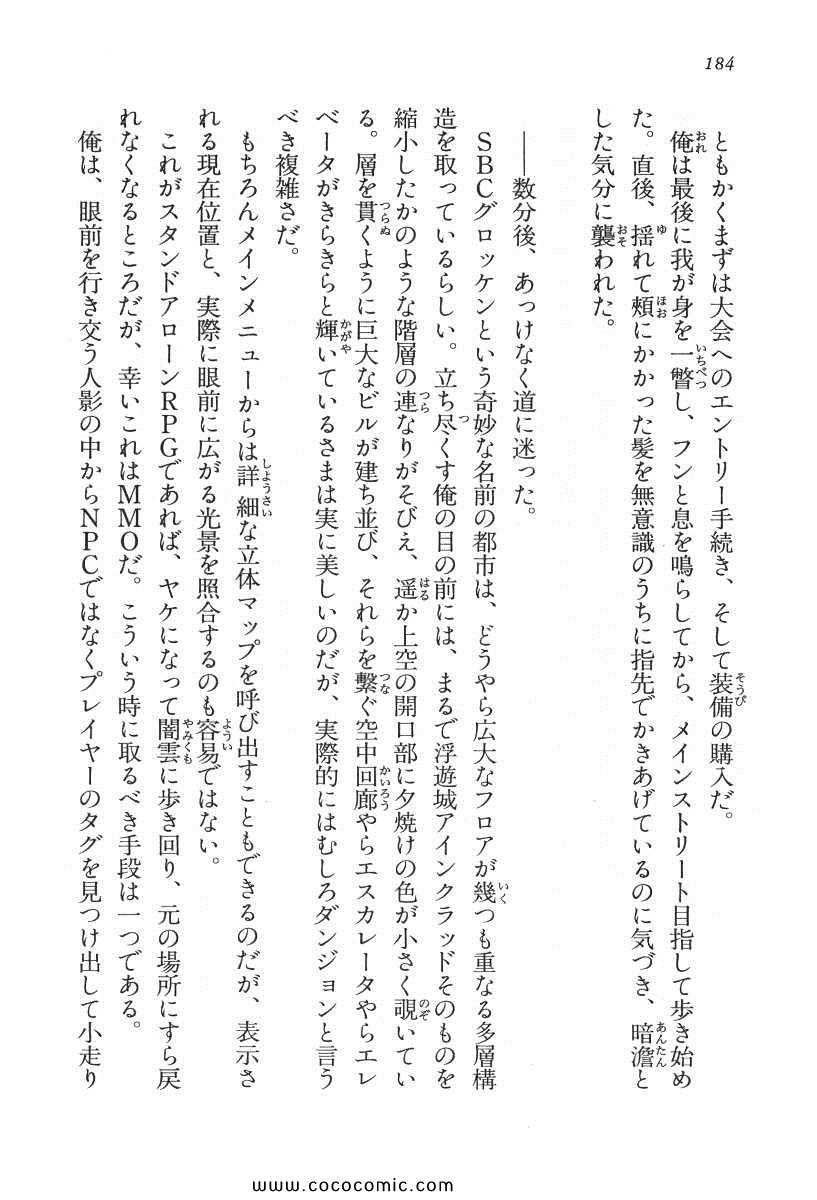 184
ともかくまずは大会へのエントリー手続き、そして装備の購入だ。
俺は最後に我が身を一瞥し、フンと息を鳴らしてから、メインストリート目指して歩き始め
た。直後、揺れて頬にかかった髪を無意識のうちに指先でかきあげているのに気づき、暗澹と
した気分に襲われた。
――数分後、あっけなく道に迷った。
SBCグロッケンという奇妙な名前の都市は、どうやら広大なフロアが幾つも重なる多層構
造を取っているらしい。立ち尽くす俺の目の前には、まるで浮遊城アインクラッドそのものを
縮小したかのような階層の連なりがそびえ、遥か上空の開口部に夕焼けの色が小さく覗いてい
る。層を貫くように巨大なビルが建ち並び、それらを繋ぐ空中回廊やらエスカレータやらエレ
ベータがきらきらと輝いているさまは実に美しいのだが、実際的にはむしろダンジョンと言う
べき複雑さだ。
もちろんメインメニューからは詳細な立体マップを呼び出すこともできるのだが、表示さ
れる現在位置と、実際に眼前に広がる光景を照合するのも容易ではない。
これがスタンドアローンRPGであれば、ヤケになって闇雲に歩き回り、元の場所にすら戻
れなくなるところだが、幸いこれはMMOだ。こういう時に取るべき手段は一つである。
俺は、眼前を行き交う人影の中からNPCではなくプレイヤーのタグを見つけ出して小走り
www.cococomic.com